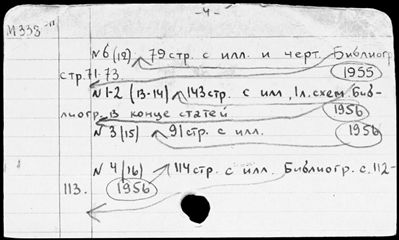 - 4 -
М338-"
N6 (12) 79 стр. с илл. и черт. Библиогр
стр. 71-73. 1955
N1-2 (13-14) 143 стр. с илл, 1л. схем. Биб-
лиогр. в конце статей 1956
N3 (15) 91 стр. с илл. 1956
N4 (16) 114 стр. с илл. Библиогр. с. 112-
113. 1956